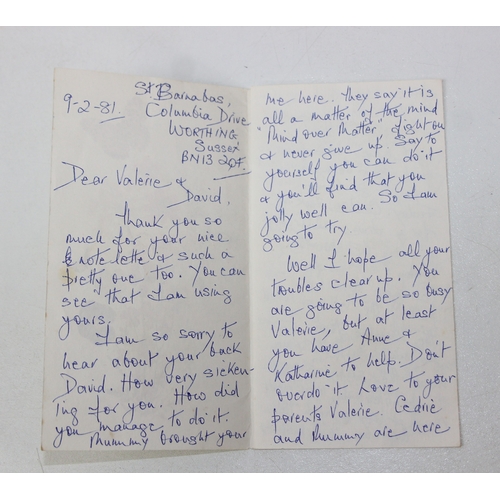 St Barnabas,
9-2-81. Columbia Drive
WORTHING
Sussex
BN13
Dear Valerie &
David,
Thank you so
much for your nice
note lette & such a
pretty one too. You can
see that I am using
yours.
I am so sorry to
hear about your back
David. How very sicken-
ing for you. How did
you manage to do it.
Mummy brought your
me here. They say it is
all a matter of the mind
"Mind over Matter", Fight on
& never give up. Say to
yourself you can do it
& you'll find that you
jolly well can. So I am
going to try.
Well I hope all your
troubles clear up. You
are going to be so busy
Valerie, but at least
you have Anne &
Katharine to help. Don't
overdo it. Love to your
parents Valerie. Cedric
and Mummy are here